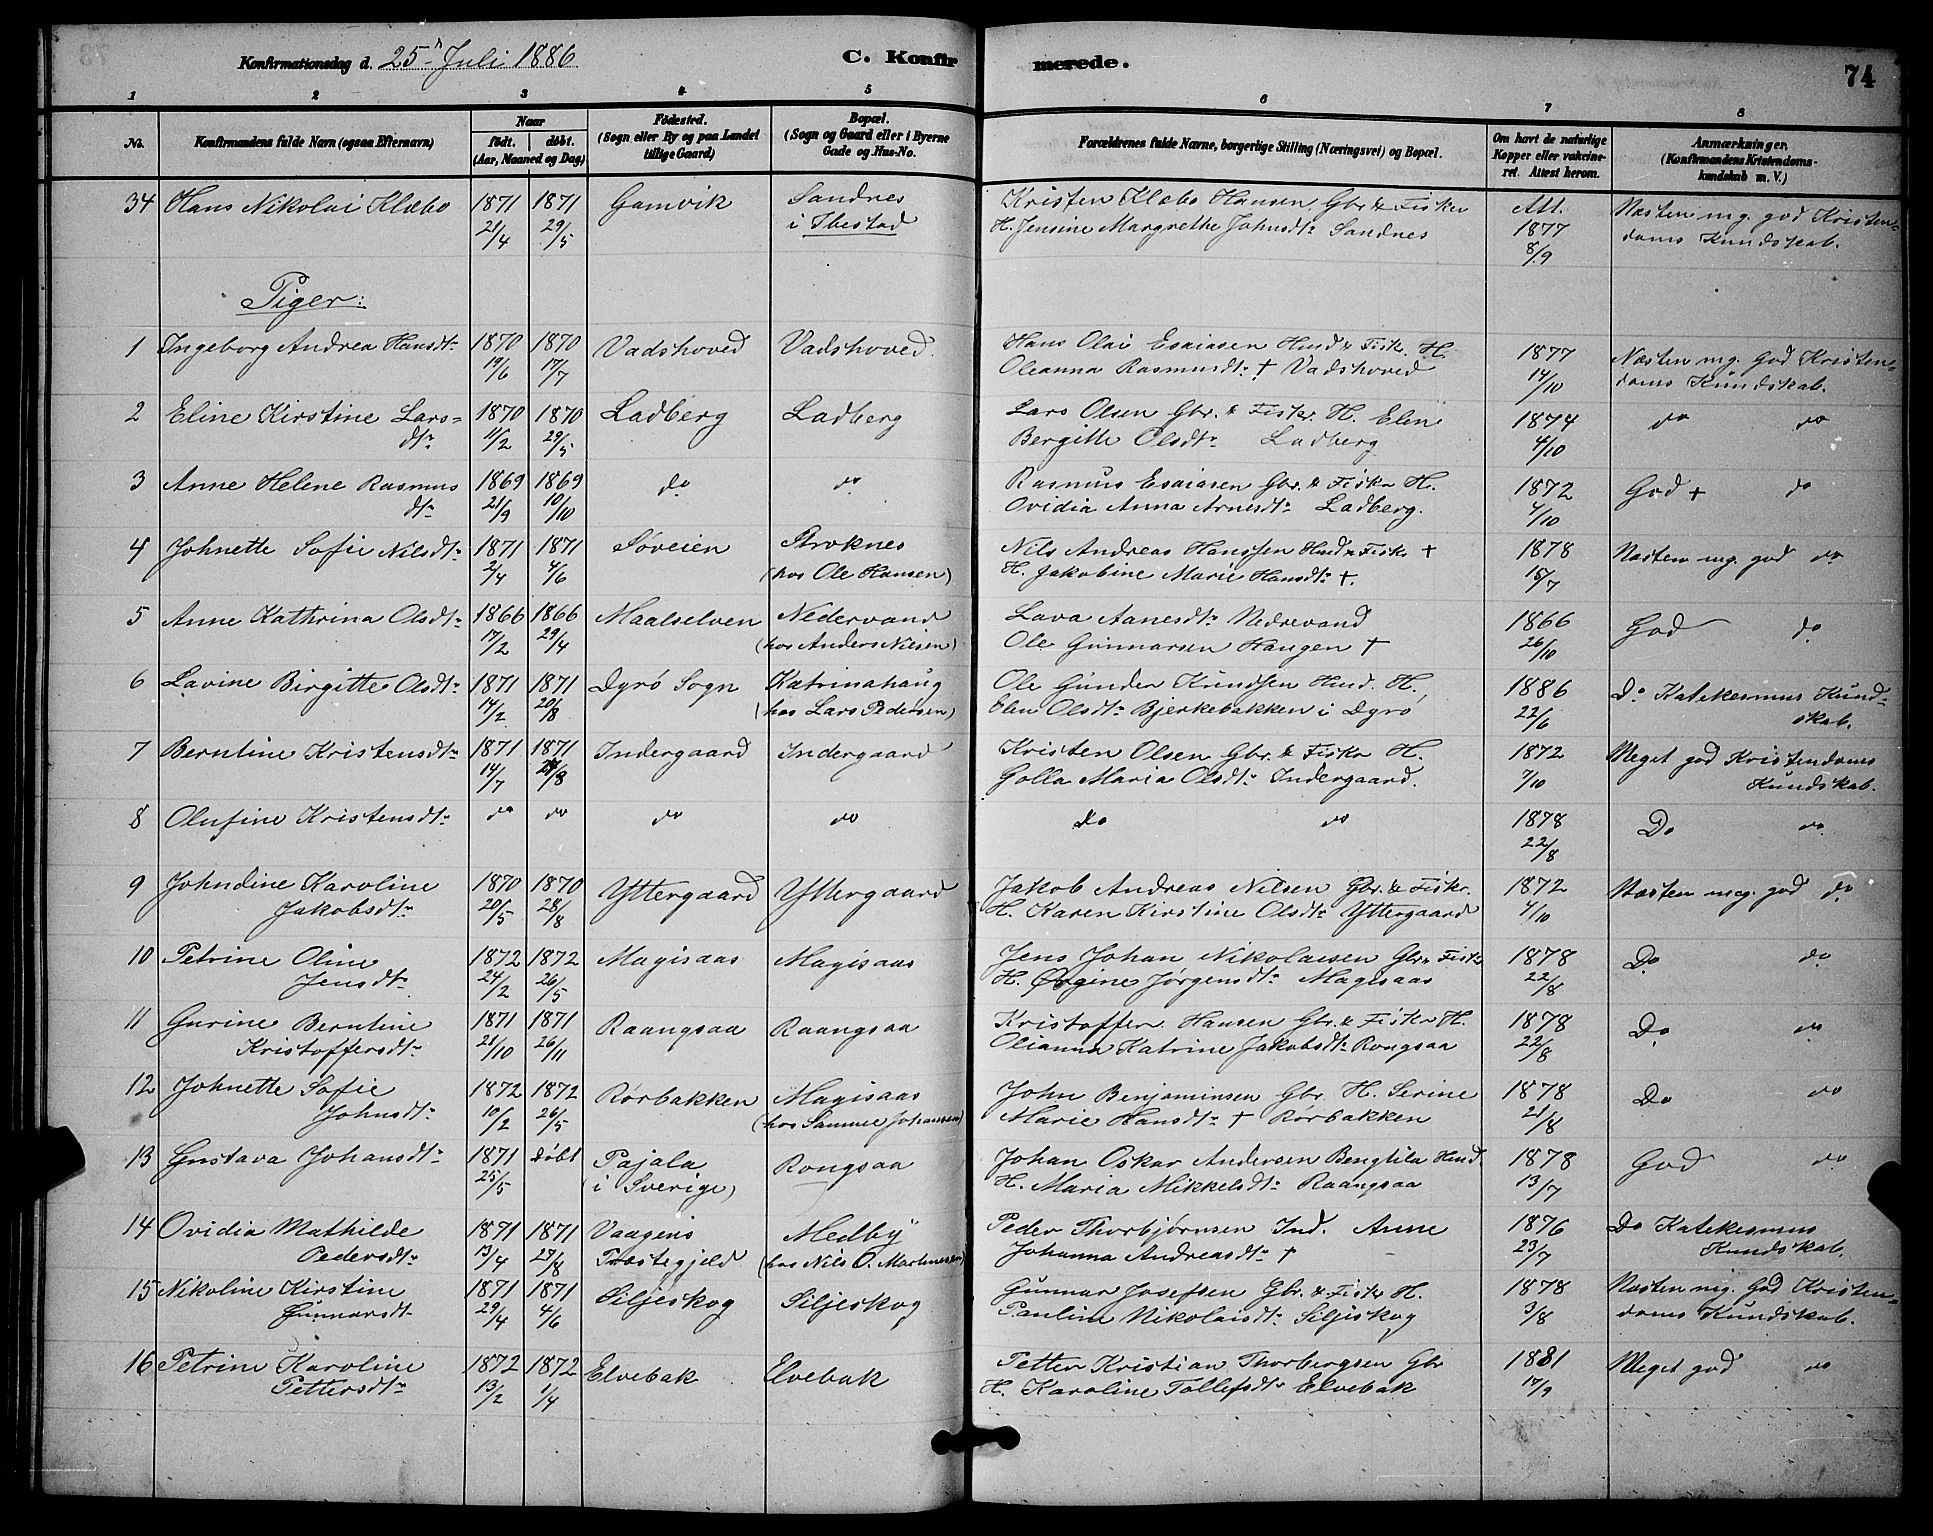 Konfirmationsdag d. 25n Juli 1886
C. Konfirmerede.
74
1 2 3 4 5 6 7 8
No.
Konfirmandens fulde Navn (ogsaa Efternavn)
Naar
født. døbt.
(Aar, Maaned og Dag)
Fødested.
(Sogn eller By og paa Landet
tillige Gaard)
Bopæl.
(Sogn og Gaard eller i Byerne
Gade og Hus-No.
Forældrenes fulde Navne, borgerlige Stilling (Næringsvei) og Bopæl.
Om havt de naturlige
Kopper eller vakcine-
ret. Attest herom.
Anmærkninger.
(Konfirmandens Kristendoms-
kundskab m. V.)
34 Hans Nikolai Klæbo 1871 1871 Gamvik Sandnes Kristen Klæbo Hansen Gbr & Fisker Att. Næsten mg. god Kristen-
21/4 29/5 i Ibestad H. Jensine Margrethe Johnsdtr Sandnes 1877 doms Kundskab.
8/9
Piger:
1 Ingeborg Andrea Hansdtr 1870 1870 Vadshoved Vadshoved. Hans Olai Esaiasen Hmd & Fiskr. H. 1877 Næsten mg. God Kristen-
19/6 17/7 Oleanna Rasmusdtr † Vadshoved 14/10 doms Kundskab.
2 Eline Kirstine Lars- 1870 1870 Ladberg Ladberg Lars Olsen Gbr. & Fiskr. H. Elen 1874 do do
dtr 11/2 29/5 Bergitte Olsdtr Ladberg 4/10
3 Anne Helene Rasmus 1869 1869 do do Rasmus Esaiasen Gbr. & Fiskr H. 1872 God + do
dtr 21/9 10/10 Ovidia Anna Arnesdtr Ladberg. 4/10
4 Johnette Sofie Nilsdtr 1871 1871 Søveien Stroknes Nils Andreas Hanssen Hmd & Fiskr † 1878 Næsten mg. god do
2/4 4/6 (hos Ole Hansen) H. Jakobine Marie Hansdtr †. 15/7
5 Anne Kathrina Olsdtr 1866 1866 Maalselven Nedervand Lava Aanesdtr Nedrevand 1866 God do
17/2 29/4 (hos Anders Nilsen) Ole Gunnarsen Haugen † 26/10
6 Lavine Birgitte Olsdtr 1871 1871 Dyrø Sogn Katrinahaug Ole Gunder Kundssen Hmd. H. 1886 Do Katekesmus Kund-
14/2 20/8 (hos Lars Pedersen) Elen Olsdtr Bjerkebakken i Dyrø 22/6 skab.
7 Berntine Kristensdtr 1871 1871 Indergaard Indergaard Kristen Olsen Gbr. & Fiskr H. 1872 Meget god Kristendoms
14/7 /8 Golla Maria Olsdtr Indergaard. 7/10 Kundskab.
8 Olufine Kristensdtr do do do do Do do 1878 Do do
22/8
9 Johndine Karoline 1870 1870 Yttergaard Yttergaard Jakob Andreas Nilsen Gbr. & Fiskr. 1872 Næsten meg. god do
Jakobsdtr 20/5 28/8 H. Karen Kirstine Olsdtr Yttergaard 4/10
10 Petrine Oline 1872 1872 Magisaas Magisaas Jens Johan Nikolaisen Gbr & Fiskr 1878 Do do
Jensdtr 24/2 26/5 H. Øvgine Jørgensdtr Magisaas 22/8
11 Gurine Berntine 1871 1871 Raangsaa Raangsaa Kristoffer Hansen Gbr. & Fiskr H. 1878 Do do
Kristoffersdtr 21/10 26/11 Olianna Katrine Jakobsdtr Rongsaa 22/8
12 Johnette Sofie 1872 1872 Rørbakken Magisaas John Benjaminsen Gbr. H. Serine 1878 Do do
Johnsdtr 10/2 26/5 (hos Samuel Johansen) Marie Hansdtr † Rørbakken 21/8
13 Gustava Johansdtr 1871 døbt Pajala Rongsaa Johan Oskar Andersen Bengtila Hmd. 1878 God do
25/5 (i Sverige) H. Maria Mikkelsdtr Raangsaa 13/7
14 Ovidia Mathilde 1871 1871 Vaagens Medby Peder Thorbjørnsen Ind. Anne 1876 Do Katekesmus
Pedersdtr 13/4 27/8 Præstegjeld (hos Nils O. Martinesen) Johanna Andreasdtr † 23/7 Kundskab.
15 Nikoline Kirstine 1871 1871 Siljeskog Siljeskog Gunnar Josefsen Gbr. & Fiskr H. 1878 Næsten mg. God Kristen-
Gunnarsdtr 29/4 4/6 Paulina Nikolaisdtr Siljeskog 3/8 doms Kundskab.
16 Petrine Karoline 1872 1872 Elvebak Elvebak Petter Kristian Thorbergsen Gbr 1881 Meget god do
Pettersdtr 13/2 1/4 H. Karoline Tollefsdtr Elvebak 17/9